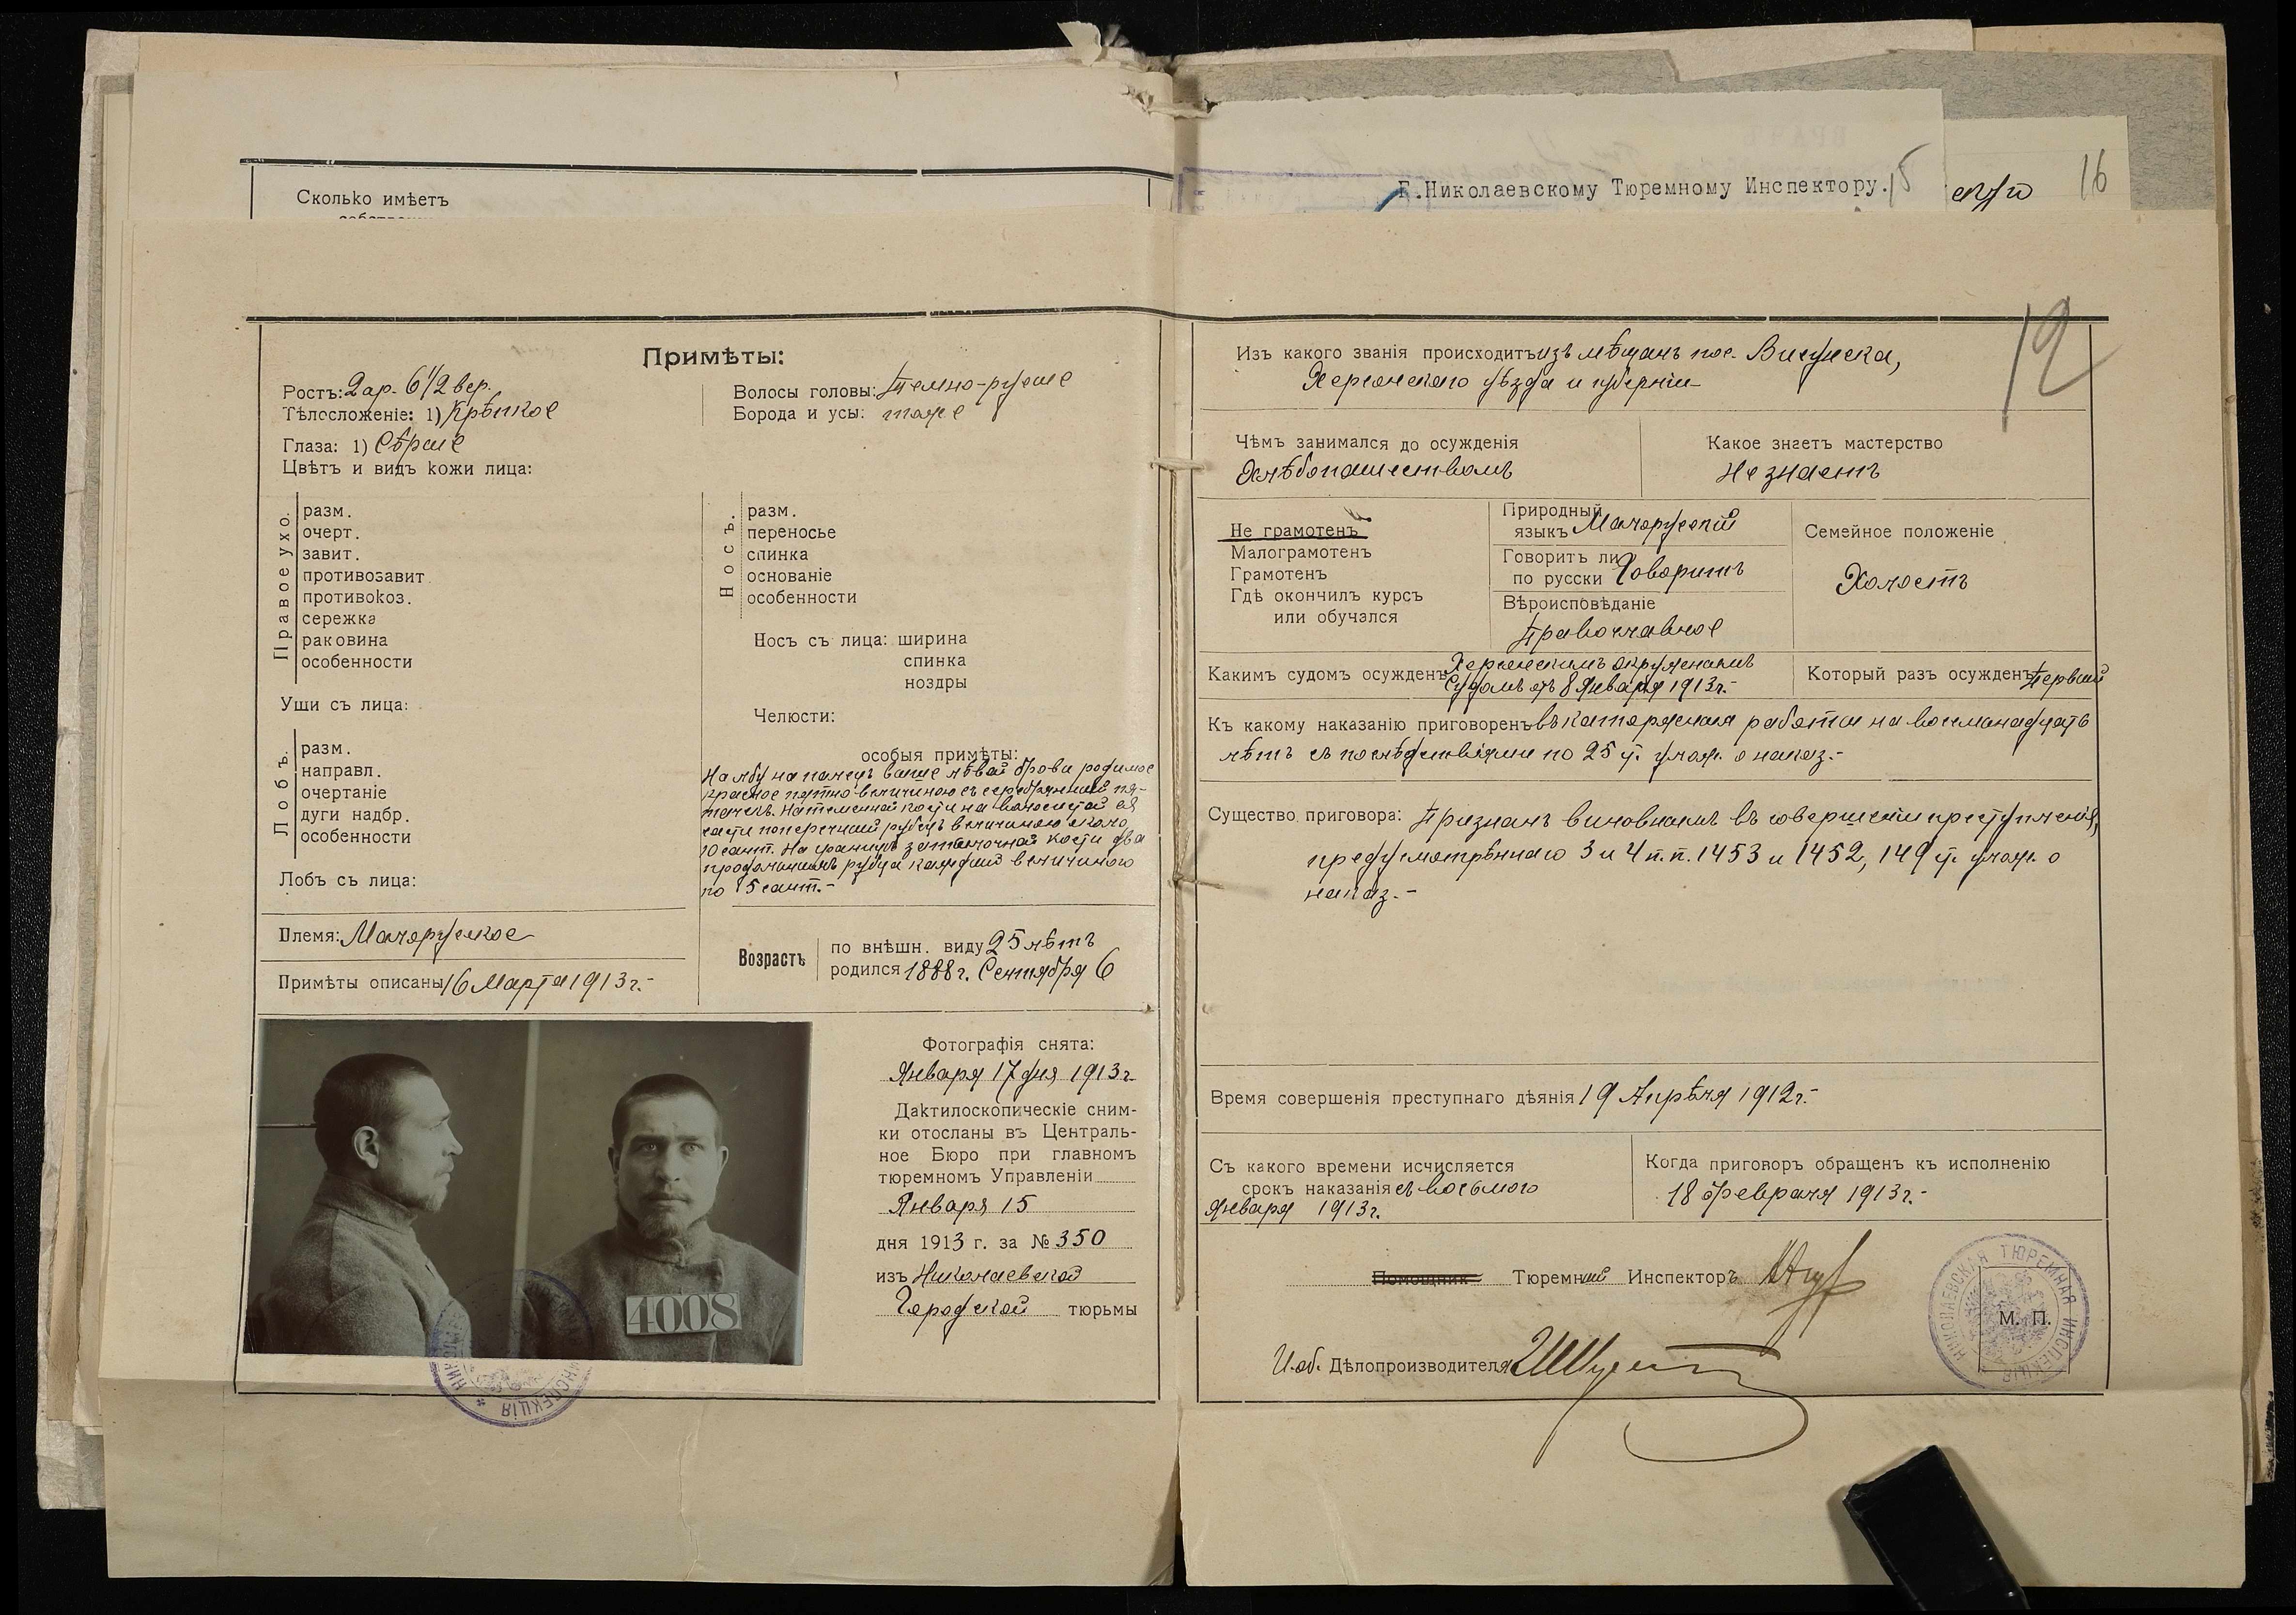 Сколько имѣетъ
Г.Николаевскому Тюремному Инспектору.
15
16
12
Примѣты:
Ростъ: 2 ар. 6 1/2 вер.
Тѣлосложеніе: 1) Крѣпкое
Глаза: 1) Сѣрые
Цвѣтъ и видъ кожи лица:
Волосы головы: Темно-русые
Борода и усы: тоже
Правое ухо.
разм.
очерт.
завит.
противозавит.
противокоз.
сережка
раковина
особенности
Уши съ лица:
Лобъ.
разм.
направл.
очертаніе
дуги надбр.
особенности
Лобъ съ лица:
Носъ.
разм.
переносье
спинка
основаніе
особенности
Носъ съ лица: ширина
спинка
ноздры
Челюсти:
особыя примѣты:
На лбу на палецъ выше лѣвой брови родимое
красное пятно величиною съ серебрянный пя-
тачекъ. На теменной кости на волосистой ея
части поперечный рубецъ величиною около
10 сант. На границѣ затылочной кости два
продольныхъ рубца каждый величиною
по 5 сант.-
Племя: Малорусское
Примѣты описаны 16 Марта 1913 г.-
Возрастъ
по внѣшн. виду 25 лѣтъ
родился 1888 г. Сентября 6
4008
Фотографія снята:
Января 17 дня 1913 г.
Дактилоскопическіе сним-
ки отосланы въ Централь-
ное Бюро при главномъ
тюремномъ Управленіи
Января 15
дня 1913 г. за № 350
изъ Николаевской
Городской тюрьмы
Изъ какого званія происходитъ изъ мѣщанъ пос. Висунска,
Херсонскаго уѣзда и губерніи
Чѣмъ занимался до осужденія
Хлѣбопашествомъ
Какое знаетъ мастерство
Не знаетъ
Не грамотенъ
Малограмотенъ
Грамотенъ
Гдѣ окончилъ курсъ
или обучался
Природный
языкъ Малорусскій
Говоритъ ли
по русски Говоритъ
Вѣроисповѣданіе
Православное
Семейное положеніе
Холостъ
Какимъ судомъ осужденъ Херсонскимъ окружнымъ
Судомъ отъ 8 Января 1913 г.-
Который разъ осужденъ Первый
Къ какому наказанію приговоренъ въ каторжныя работы на восемнадцать
лѣтъ съ послѣдствіями по 25 ст. улож. о наказ.-
Существо приговора: Признанъ виновнымъ въ совершеніи преступленія,
предусмотрѣннаго 3 и 4 п.п. 1453 и 1452, 149 ст. улож. о
наказ.-
Время совершенія преступнаго дѣянія 19 Апрѣля 1912 г.-
Съ какого времени исчисляется
срокъ наказанія съ восьмого
Января 1913 г.
Когда приговоръ обращенъ къ исполненію
18 Февраля 1913 г.-
Помощникъ Тюремный Инспекторъ
И. об. Дѣлопроизводителя
НИКОЛАЕВСКАЯ ТЮРЕМНАЯ ИНСПЕКЦІЯ
М. П.